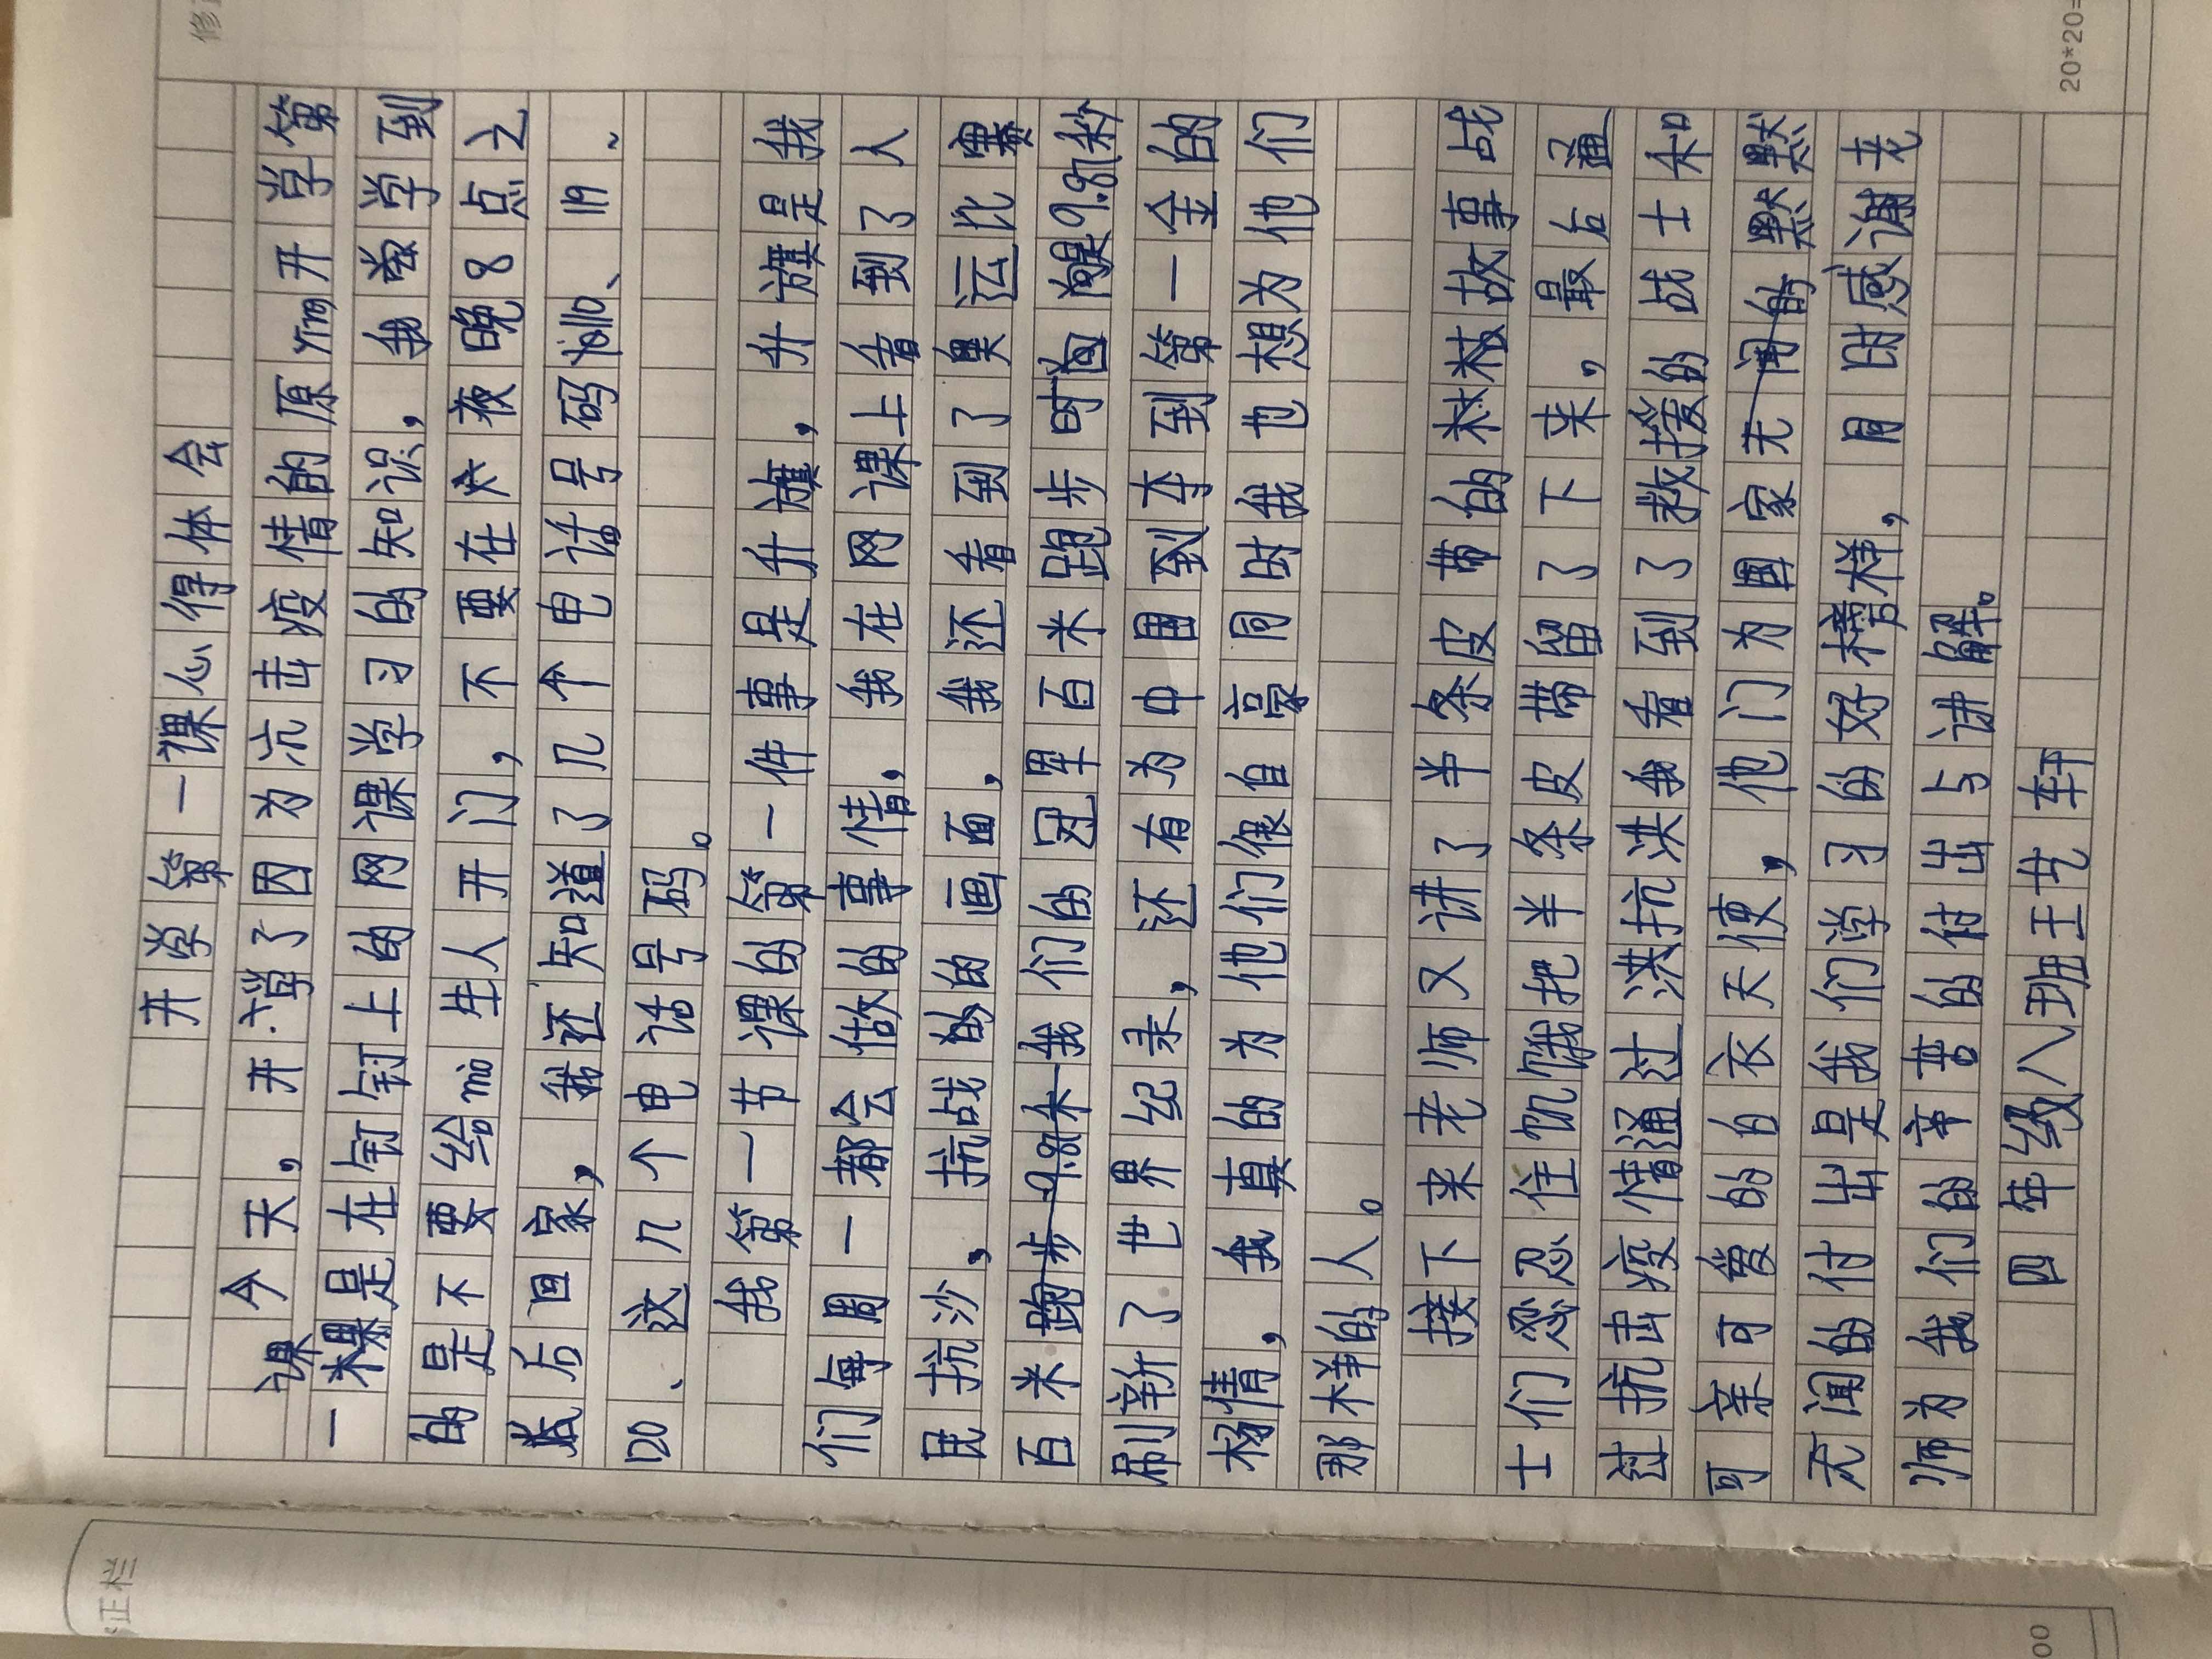 修
开学第一课心得体会
今天，开学了因为抗击疫情的原yin开学第
一课是在钉钉上的网课学习的知识，我学到
的是不要给mò生人开门，不要在夜晚8点之
后回家，我还知道了几个电话号码110、119、
120、这几个电话号码。
我第一节课的第一件事是升旗，升旗是我
们每周一都会做的事情，我在网课上看到了人
民抗沙，抗战的的画面，我还看到了奥运比赛
百米跑步9.8米我们的冠军百米跑步时面9.8秒
刷新了世界纪录，还有为中国到李到第一金的
杨倩，我真的为他们很自豪同时我也想为他们
那样的人。
接下来老师又讲了半条皮带的故事战
士们忍住饥饿把半条皮带留了下来，最后通
过抗击疫情通过洪抗洪我看到了救援的战士和
可亲可爱的白衣天使，他们为国家无闻的默默
无闻的付出是我们学习的好榜样，同时感谢老
师为我们的辛苦的付出与讲解。
四年级八班王艺轩
20*20=
正栏
00